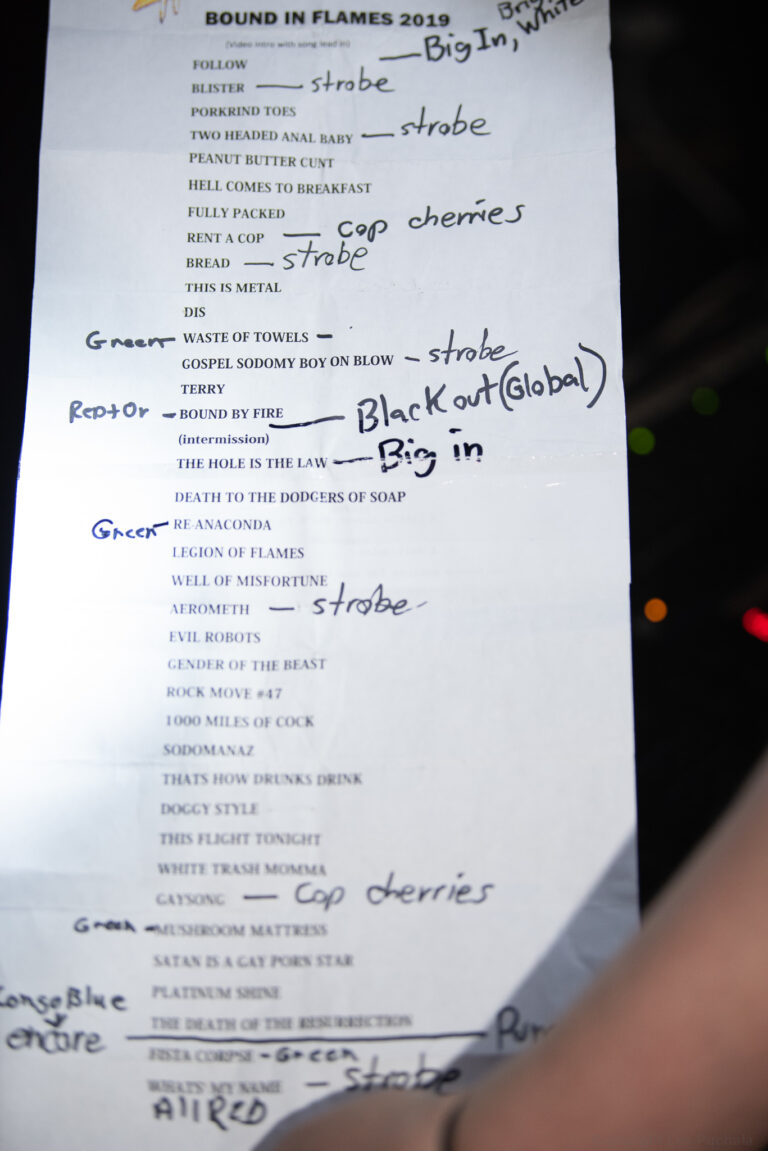 BOUND IN FLAMES 2019
(Video intro with song lead in)
FOLLOW — Big In, White
BLISTER — strobe
PORKRIND TOES
TWO HEADED ANAL BABY — strobe
PEANUT BUTTER CUNT
HELL COMES TO BREAKFAST
FULLY PACKED
RENT A COP — cop cherries
BREAD — strobe
THIS IS METAL
DIS
Green — WASTE OF TOWELS —
GOSPEL SODOMY BOY ON BLOW — strobe
TERRY
— BOUND BY FIRE — Blackout (Global)
(intermission)
THE HOLE IS THE LAW — Big in
DEATH TO THE DODGERS OF SOAP
Green — RE-ANACONDA
LEGION OF FLAMES
WELL OF MISFORTUNE
AEROMETH — strobe
EVIL ROBOTS
GENDER OF THE BEAST
ROCK MOVE #47
1000 MILES OF COCK
SODOMANAZ
THATS HOW DRUNKS DRINK
DOGGY STYLE
THIS FLIGHT TONIGHT
WHITE TRASH MOMMA
GAYSONG — Cop cherries
Green — MUSHROOM MATTRESS
SATAN IS A GAY PORN STAR
PLATINUM SHINE
Blue
THE DEATH OF THE RESURRECTION
encore
FISTA CORPSE - Green
WHATS' MY NAME — strobe
All RED